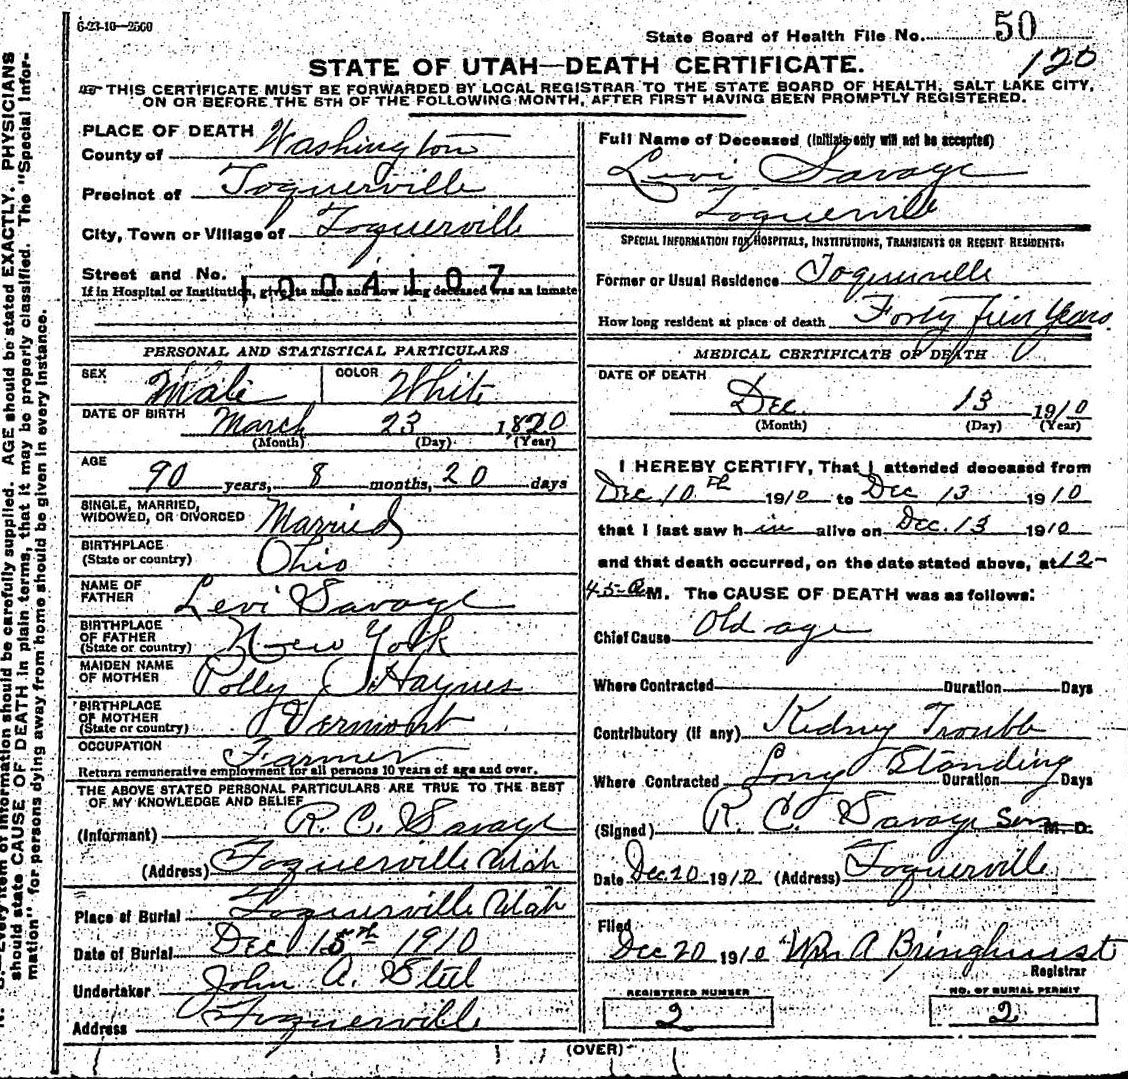 6-23-10—2500
State Board of Health File No. 50
120
STATE OF UTAH—DEATH CERTIFICATE.
THIS CERTIFICATE MUST BE FORWARDED BY LOCAL REGISTRAR TO THE STATE BOARD OF HEALTH, SALT LAKE CITY,
ON OR BEFORE THE 5TH OF THE FOLLOWING MONTH, AFTER FIRST HAVING BEEN PROMPTLY REGISTERED.
PLACE OF DEATH
County of Washington
Precinct of Toquerville
City, Town or Village of Toquerville
Street and No.
1004107
If in Hospital or Institution, give its name and how long deceased was an inmate
PERSONAL AND STATISTICAL PARTICULARS
SEX Male COLOR White
DATE OF BIRTH March 23 1820
(Month) (Day) (Year)
AGE
90 years, 8 months, 20 days
SINGLE, MARRIED,
WIDOWED, OR DIVORCED Married
BIRTHPLACE
(State or country) Ohio
NAME OF
FATHER Levi Savage
BIRTHPLACE
OF FATHER
(State or country) New York
MAIDEN NAME
OF MOTHER Polly Haynes
BIRTHPLACE
OF MOTHER
(State or country) Vermont
OCCUPATION Farmer
Return remunerative employment for all persons 10 years of age and over.
THE ABOVE STATED PERSONAL PARTICULARS ARE TRUE TO THE BEST
OF MY KNOWLEDGE AND BELIEF
(Informant) R. C. Savage
(Address) Toquerville Utah
Place of Burial Toquerville Utah
Date of Burial Dec 15th 1910
Undertaker John A. Steel
Address Toquerville
Full Name of Deceased (Initials only will not be accepted)
Levi Savage
Toquerville
SPECIAL INFORMATION FOR HOSPITALS, INSTITUTIONS, TRANSIENTS OR RECENT RESIDENTS:
Former or Usual Residence Toquerville
How long resident at place of death Forty five Years
MEDICAL CERTIFICATE OF DEATH
DATE OF DEATH
Dec. 13 1910
(Month) (Day) (Year)
I HEREBY CERTIFY, That I attended deceased from
Dec 10th 1910 to Dec 13 1910
that I last saw h im alive on Dec. 13 1910
and that death occurred, on the date stated above, at 12-
45-a M. The CAUSE OF DEATH was as follows:
Chief Cause Old age
Where Contracted Duration Days
Contributory (if any) Kidney Trouble
Where Contracted Long Standing Duration Days
(Signed) R. C. Savage M. D.
Date Dec. 20 1910 (Address) Toquerville
Filed
Dec 20 1910 Wm A Bringhurst
Registrar
REGISTERED NUMBER
2
NO. OF BURIAL PERMIT
2
(OVER)
Every item of information should be carefully supplied. AGE should be stated EXACTLY. PHYSICIANS
should state CAUSE OF DEATH in plain terms, that it may be properly classified. The "Special Infor-
mation" for persons dying away from home should be given in every instance.